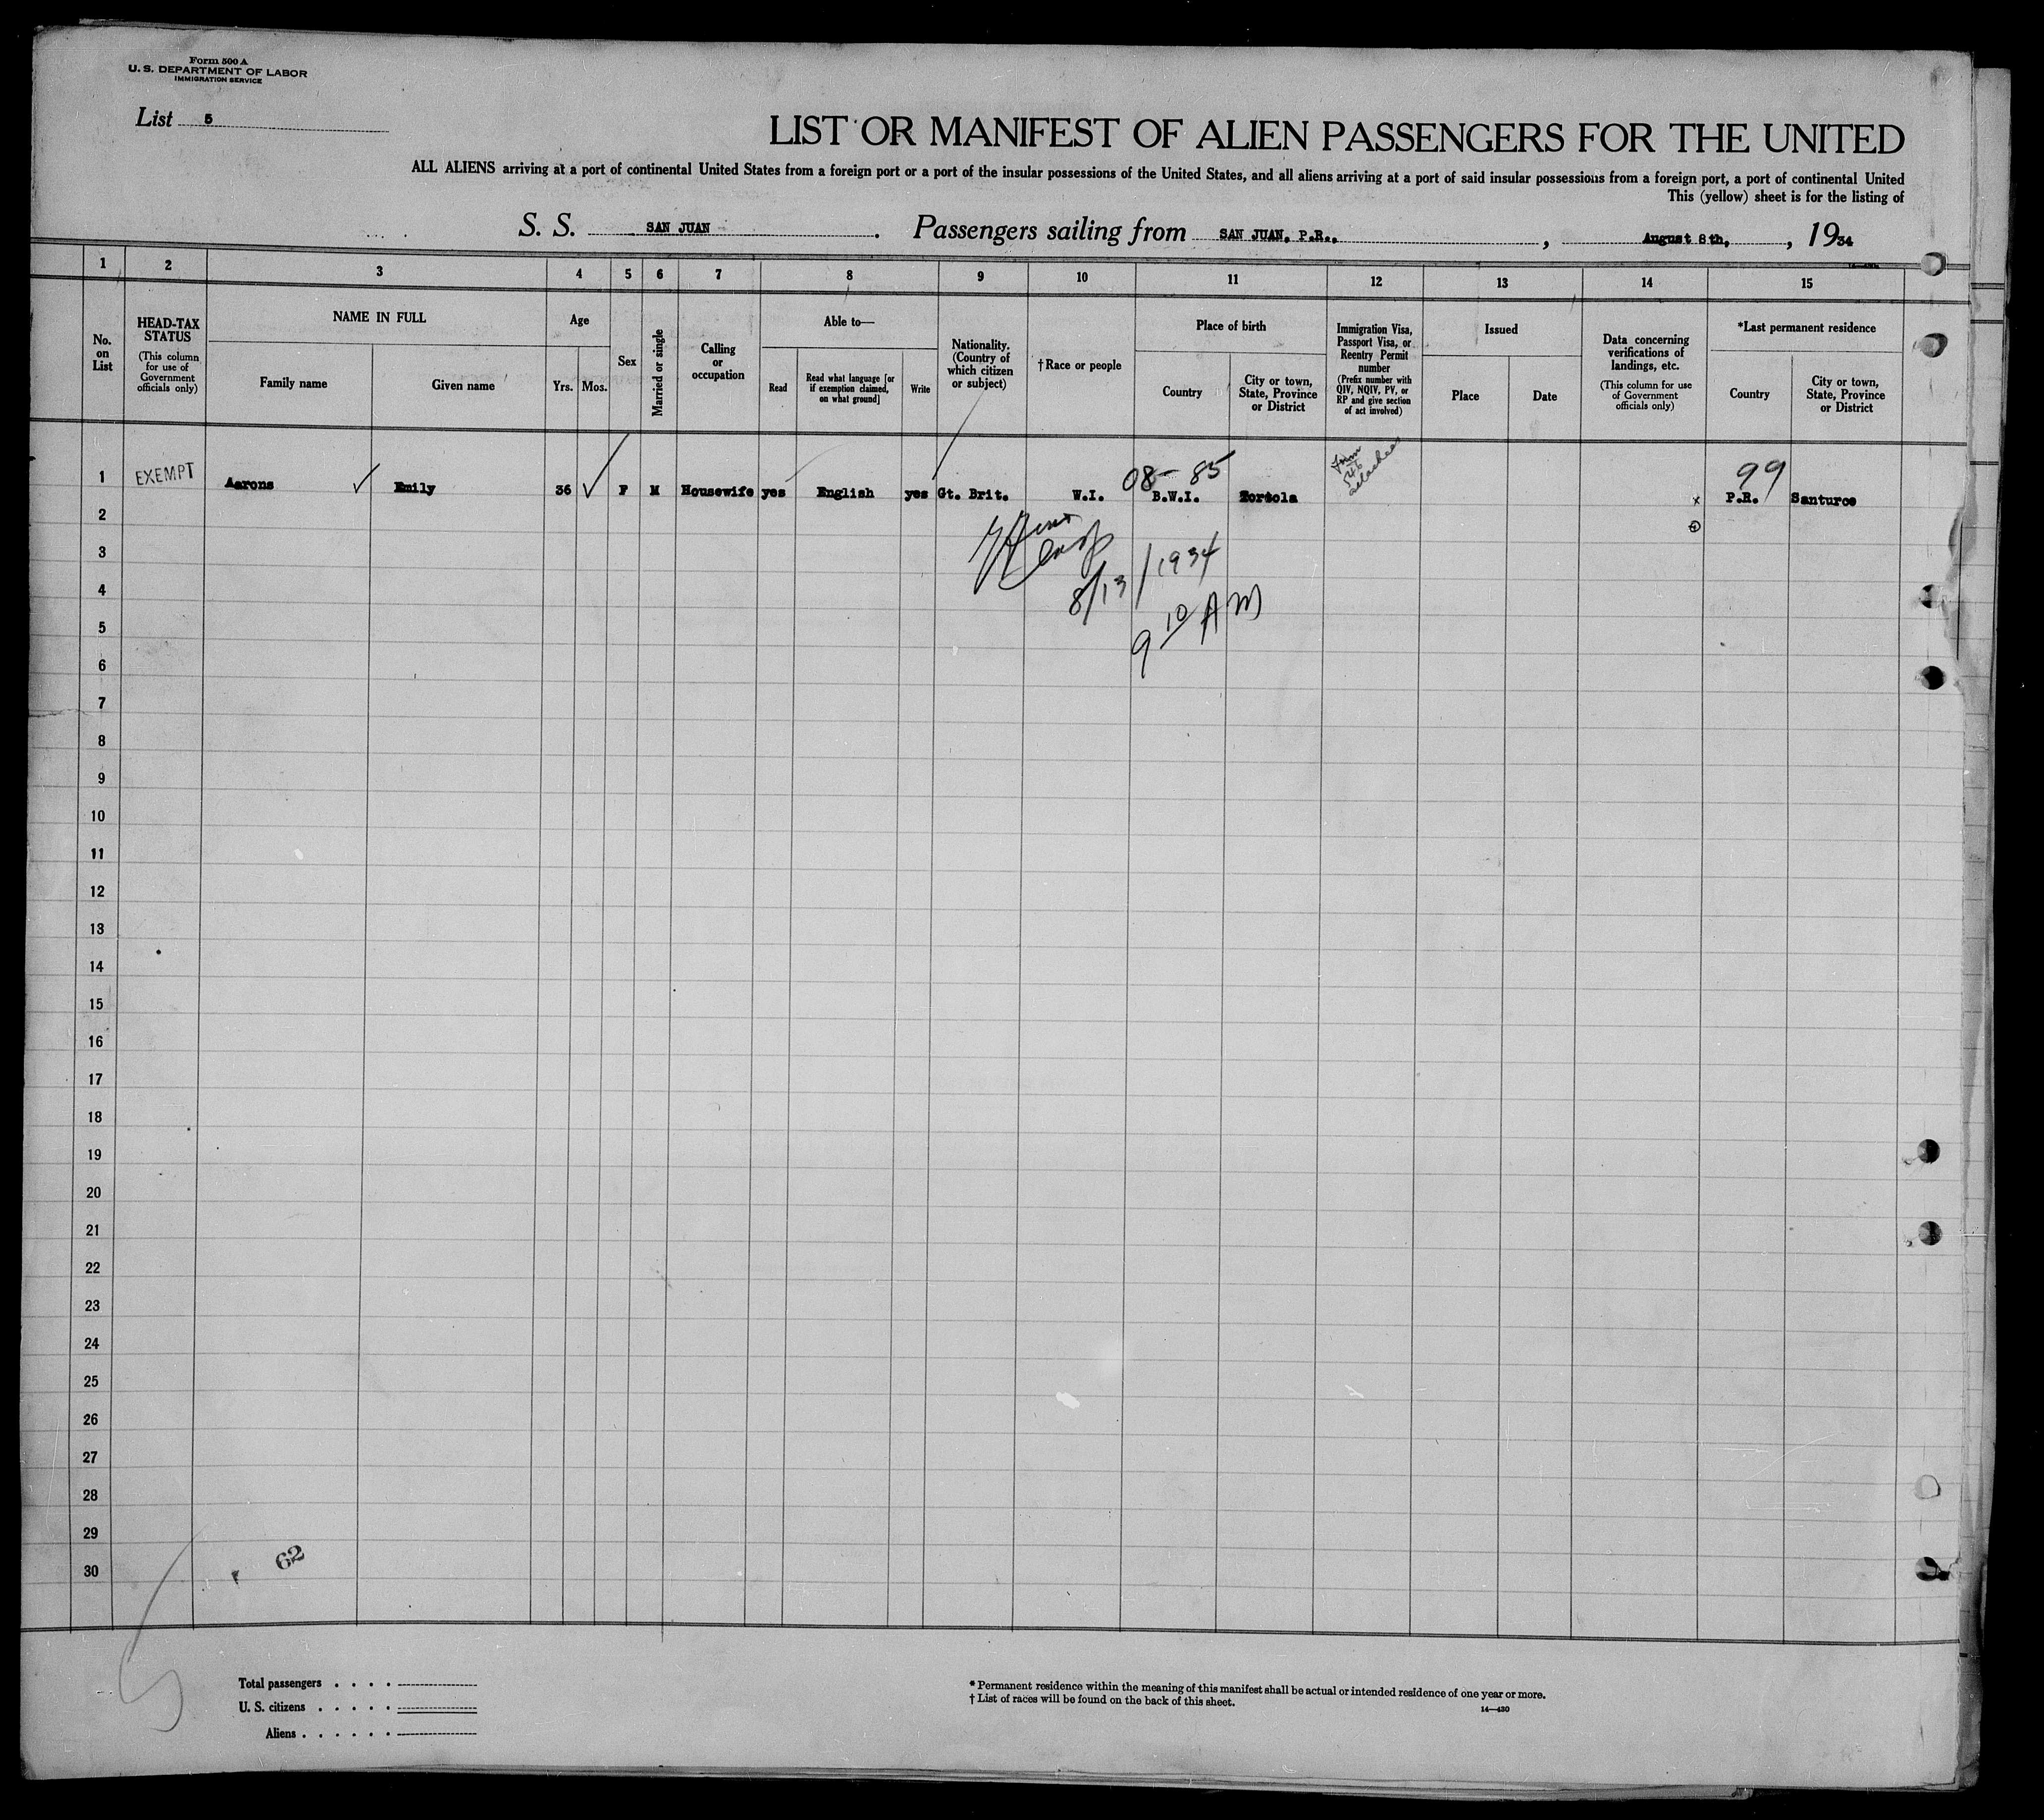 Form 500 A
U. S. DEPARTMENT OF LABOR
IMMIGRATION SERVICE
List 5
LIST OR MANIFEST OF ALIEN PASSENGERS FOR THE UNITED
ALL ALIENS arriving at a port of continental United States from a foreign port or a port of the insular possessions of the United States, and all aliens arriving at a port of said insular possessions from a foreign port, a port of continental United
This (yellow) sheet is for the listing of
S. S. SAN JUAN. Passengers sailing from SAN JUAN, P.R., , August 8th, , 1934
1 2 3 4 5 6 7 8 9 10 11 12 13 14 15
No. on List
HEAD-TAX STATUS
(This column for use of Government officials only)
NAME IN FULL
Family name
Given name
Age
Yrs.
Mos.
Sex
Married or single
Calling or occupation
Able to—
Read
Read what language [or if exemption claimed, on what ground]
Write
Nationality. (Country of which citizen or subject)
†Race or people
Place of birth
Country
City or town, State, Province or District
Immigration Visa, Passport Visa, or Reentry Permit number
(Prefix number with QIV, NQIV, PV, or RP and give section of act involved)
Issued
Place
Date
Data concerning verifications of landings, etc.
(This column for use of Government officials only)
*Last permanent residence
Country
City or town, State, Province or District
08-85
99
1 EXEMPT Aarons ✓ Emily 36 ✓ F M Housewife yes English yes Gt. Brit. W.I. B.W.I. Tortola Form 546 x P.R. Santurce
2
3
8/13/1934
4
9 10 AM
5
6
7
8
9
10
11
12
13
14
15
16
17
18
19
20
21
22
23
24
25
26
27
28
29
62
30
Total passengers . . . .
U. S. citizens . . . . .
Aliens . . . . . .
* Permanent residence within the meaning of this manifest shall be actual or intended residence of one year or more.
† List of races will be found on the back of this sheet.
14—430